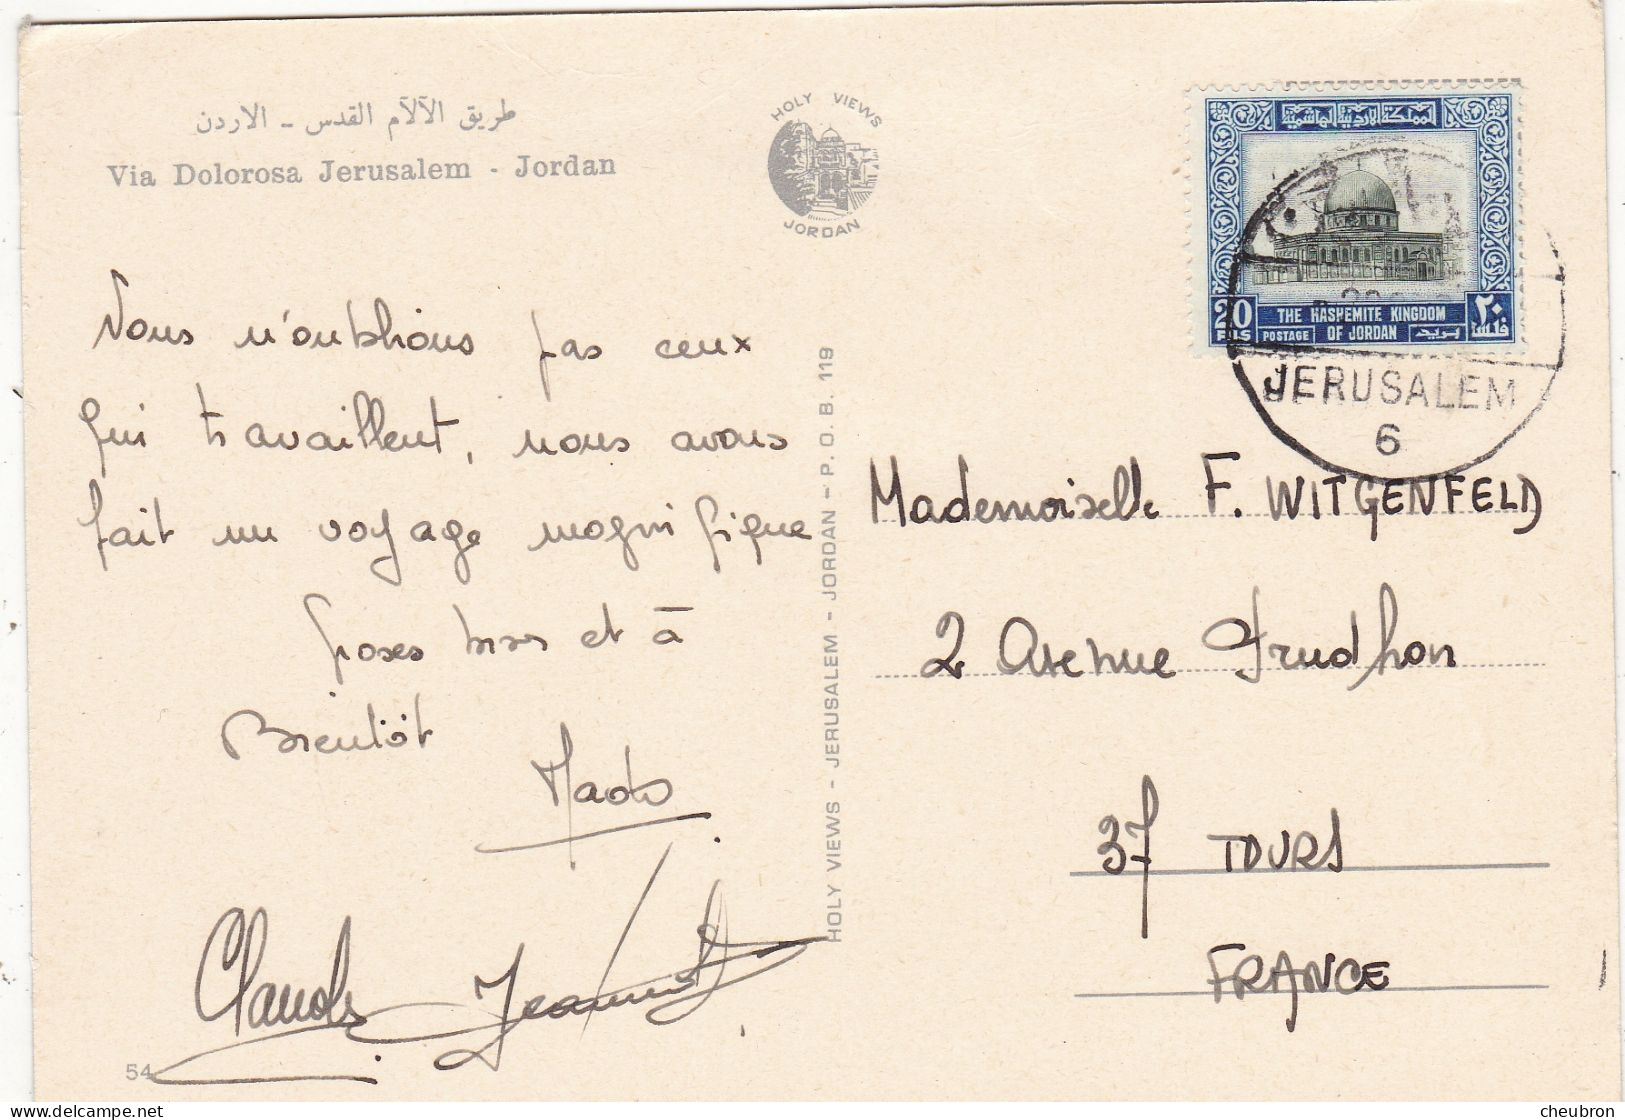 طريق الآلام القدس - الاردن
Via Dolorosa Jerusalem - Jordan
HOLY VIEWS
JORDAN
المملكة الاردنية الهاشمية
20 ٢٠
FILS فلسا
THE HASHEMITE KINGDOM
POSTAGE OF JORDAN بريد
JERUSALEM
6
Nous n'oublions pas ceux
qui travaillent, nous avons
fait un voyage magnifique
grosses bises et à
Bientôt
Claude Jeannot
54
HOLY VIEWS - JERUSALEM - JORDAN - P.O.B. 119
Mademoiselle F. WITGENFELD
2 Avenue Prudhon
37 TOURS
FRANCE
cheubron@delcampe.com